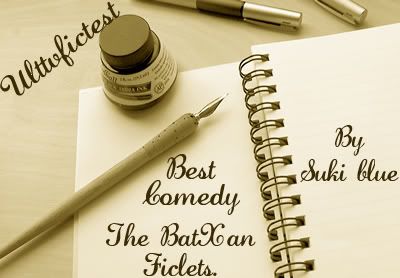 Ulttvfictest
INDIA INK
Best
Comedy
The BatXan
Ficlets.
By
Suki blue